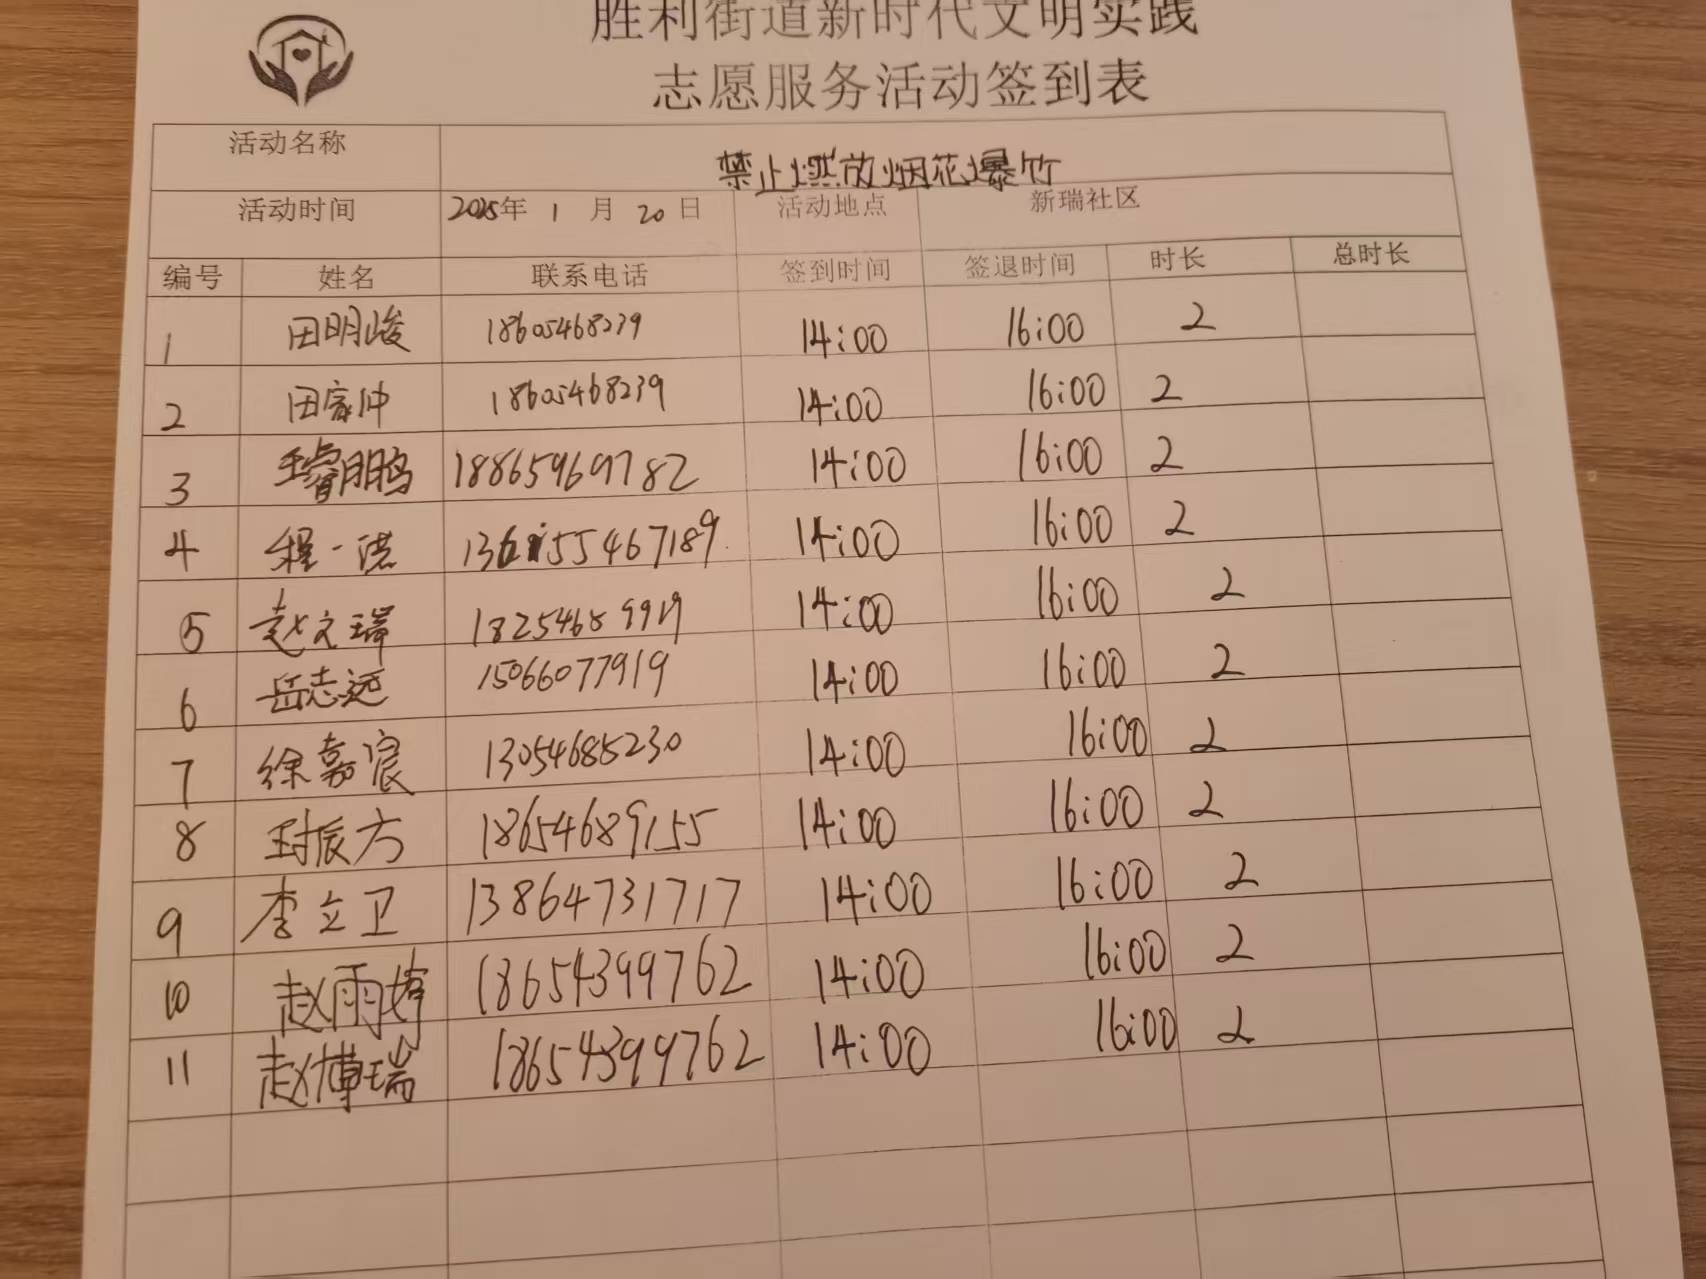 胜利街道新时代文明实践
志愿服务活动签到表
活动名称 禁止燃放烟花爆竹
活动时间 2025年 1 月 20 日 活动地点 新瑞社区
编号 姓名 联系电话 签到时间 签退时间 时长 总时长
1 田明峻 18605468239 14:00 16:00 2
2 田家仲 18605468239 14:00 16:00 2
3 王睿鹏 18865969782 14:00 16:00 2
4 程一洪 14:00 16:00 2
5 赵文瑞 14:00 16:00 2
6 岳志远 15066077919 14:00 16:00 2
7 徐嘉宸 13054685230 14:00 16:00 2
8 振方 18654689155 14:00 16:00 2
9 李立卫 13864731717 14:00 16:00 2
10 赵雨婷 18654399762 14:00 16:00 2
11 赵博瑞 18654399762 14:00 16:00 2